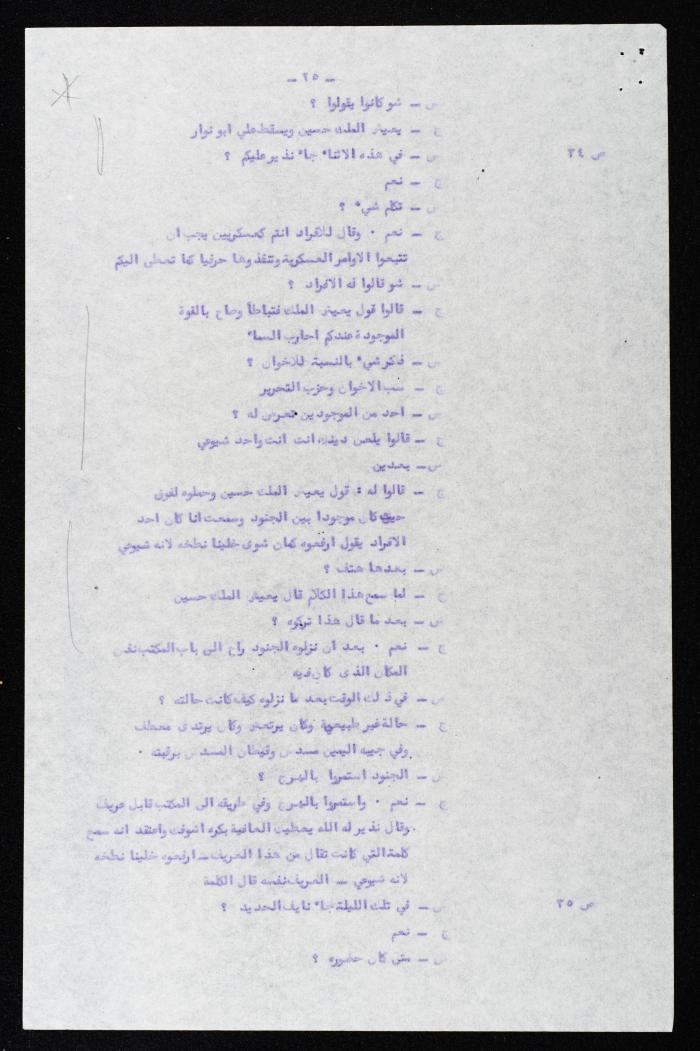 ـ ٢٥ ـ
س ـ شو كانوا يقولوا ؟
ج ـ يعيش الملك حسين ويسقط علي ابو نوار
ص ٢٤ س ـ في هذه الاثناء جاء نذير عليكم ؟
ج ـ نعم
س ـ تكلم شيء ؟
ج ـ نعم ٠ وقال للافراد انتم كعسكريين يجب ان
تتبعوا الاوامر العسكرية وتنفذوها حرفيا كما تعطى اليكم
س ـ شو قالوا له الافراد ؟
ج ـ قالوا قول يعيش الملك فتباطأ وصاح بالقوة
الموجودة عندكم احارب السماء
س ـ فذكر شيء بالنسبة للاخوان ؟
ج ـ سب الاخوان وحزب التحرير
س ـ احد من الموجودين تعرض له ؟
ج ـ قالوا يلعن دينك انت انت واحد شيوعي
س ـ بعدين
ج ـ قالوا له : قول يعيش الملك حسين وحملوه لفوق
حيث كان موجودا بين الجنود وسمعت انا كان احد
الافراد يقول ارفعوه كمان شوى خلينا نطخه لانه شيوعي
س ـ بعدها هتف ؟
ج ـ لما سمع هذا الكلام قال يعيش الملك حسين
س ـ بعد ما قال هذا تركوه ؟
ج ـ نعم ٠ بعد ان نزلوه الجنود راح الى باب المكتب نفس
المكان الذى كان فيه
س ـ في ذلك الوقت بعد ما نزلوه كيف كانت حالته ؟
ج ـ حالة غير طبيعية وكان يرتعش وكان يرتدى معطف
وفي جيبه اليمين مسدس وقيطان المسدس برقبته ٠
س ـ الجنود استمروا بالهرج ؟
ج ـ نعم ٠ واستمروا بالهرج وفي طريقه الى المكتب قابل عريف
وقال نذير له الله يعطيك العافية بكره اشوفك واعتقد انه سمع
كلمة التي كانت تقال من هذا العريف ـ ارفعوه خلينا نطخه
لانه شيوعي ـ العريف نفسه قال الكلمة
ص ٢٥ س ـ في تلك الليلة جاء نايف الحديد ؟
ج ـ نعم
س ـ متى كان حضوره ؟